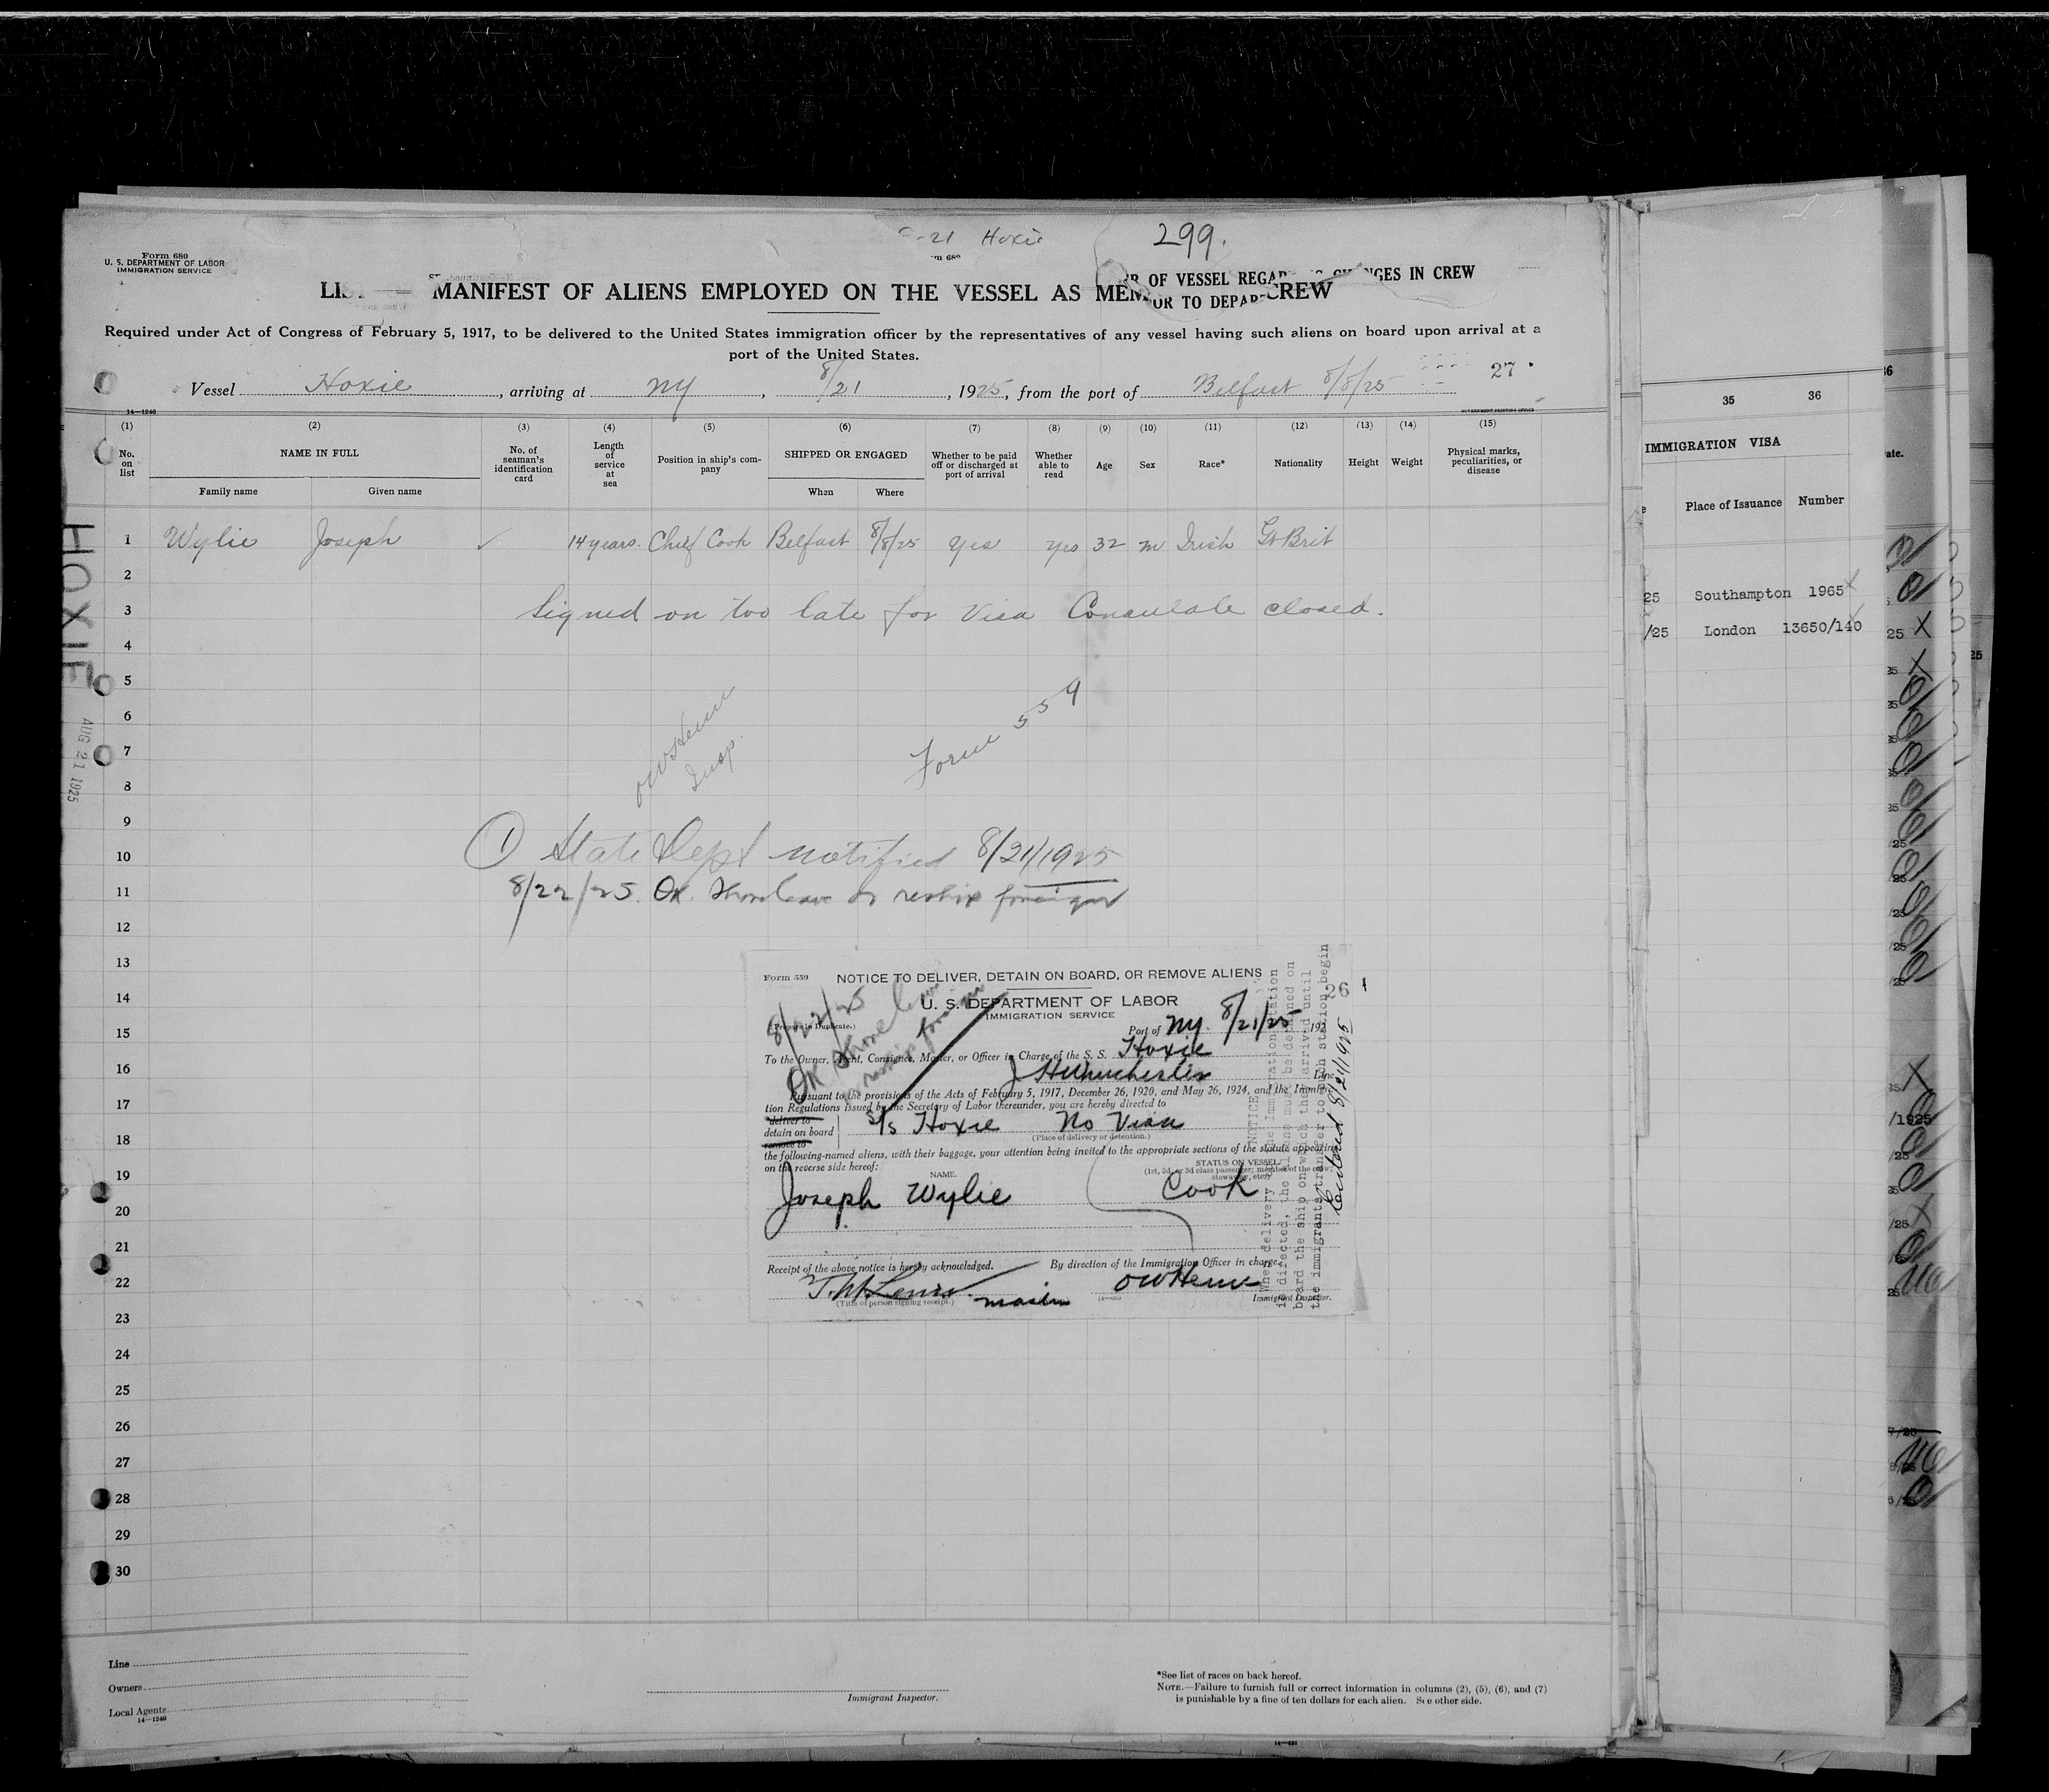 -21 Hoxie
299.
Form 680
U. S. DEPARTMENT OF LABOR
IMMIGRATION SERVICE
OF VESSEL REGAR CHANGES IN CREW
OR TO DEPAR
LIS MANIFEST OF ALIENS EMPLOYED ON THE VESSEL AS MEM CREW
Required under Act of Congress of February 5, 1917, to be delivered to the United States immigration officer by the representatives of any vessel having such aliens on board upon arrival at a
port of the United States.
27
Vessel Hoxie, arriving at NY, 8/21, 1925, from the port of Belfast 8/8/25
14—1240
GOVERNMENT PRINTING OFFICE
(1) (2) (3) (4) (5) (6) (7) (8) (9) (10) (11) (12) (13) (14) (15)
No. on list NAME IN FULL No. of seaman's identification card Length of service at sea Position in ship's company SHIPPED OR ENGAGED Whether to be paid off or discharged at port of arrival Whether able to read Age Sex Race* Nationality Height Weight Physical marks, peculiarities, or disease
Family name Given name When Where
1 Wylie Joseph 14 years. Chief Cook Belfast 8/8/25 Yes Yes 32 m Irish Gt Brit
2
3 Signed on too late for Visa Consulate closed.
4
5
6
7
8
Insp.
Form 559
HOXIE
AUG 21 1925
9
10 ① State Dept notified 8/21/1925
11 8/22/25. OK. Shore leave or reship foreign
12
13
14
15
16
17
18
19
20
21
22
23
24
25
26
27
28
29
30
Form 559 NOTICE TO DELIVER, DETAIN ON BOARD, OR REMOVE ALIENS
26 1
U. S. DEPARTMENT OF LABOR
IMMIGRATION SERVICE
(Prepare in Duplicate.)
8/22/25
OK Shore leave
or reship foreign
Port of NY. 8/21/25 192
To the Owner, Agent, Consignee, Master, or Officer in Charge of the S. S. Hoxie
J H Winchester Line
Pursuant to the provisions of the Acts of February 5, 1917, December 26, 1920, and May 26, 1924, and the Immigra-
tion Regulations issued by the Secretary of Labor thereunder, you are hereby directed to
deliver to
detain on board S/S Hoxie No Visa
remove to
(Place of delivery or detention.)
the following-named aliens, with their baggage, your attention being invited to the appropriate sections of the statute appearing
on the reverse side hereof:
NAME. STATUS ON VESSEL
(1st, 2d, or 3d class passenger; member of the crew; stowaway, etc.)
Joseph Wylie Cook
Receipt of the above notice is hereby acknowledged. By direction of the Immigration Officer in charge.
master
(Title of person signing receipt.) Immigrant Inspector.
NOTICE
When delivery to the Immigration station
is directed, the aliens must be detained on
board the ship on which they arrived until
the immigrants transfer to such station begin
Entered 8/21/1925
Line
Owners
Local Agents
14—1240
Immigrant Inspector.
*See list of races on back hereof.
NOTE.—Failure to furnish full or correct information in columns (2), (5), (6), and (7)
is punishable by a fine of ten dollars for each alien. See other side.
35 36
IMMIGRATION VISA
Place of Issuance Number
25 Southampton 1965
/25 London 13650/140